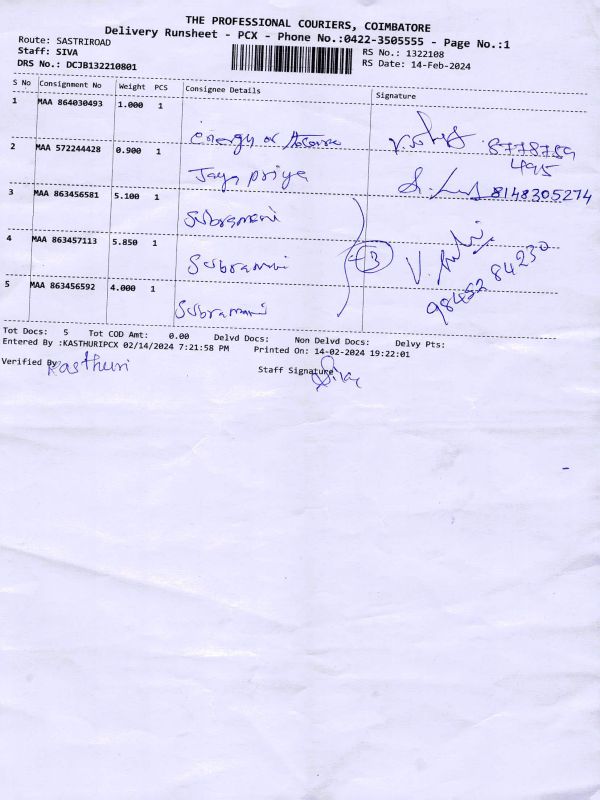 THE PROFESSIONAL COURIERS, COIMBATORE
Delivery Runsheet - PCX - Phone No.:0422-3505555 - Page No.:1
Route: SASTRIROAD
Staff: SIVA
DRS No.: DCJB132210801
RS No.: 1322108
RS Date: 14-Feb-2024
S No Consignment No Weight PCS Consignee Details Signature
1 MAA 864030493 1.000 1
energy of 8778759
495
2 MAA 572244428 0.900 1
Jaya priya 8148305274
3 MAA 863456581 5.100 1
Subramani
4 MAA 863457113 5.850 1
Subramani 3
5 MAA 863456592 4.000 1
Subramani 98452 84230
Tot Docs: 5 Tot COD Amt: 0.00 Delvd Docs: Non Delvd Docs: Delvy Pts:
Entered By :KASTHURIPCX 02/14/2024 7:21:58 PM Printed On: 14-02-2024 19:22:01
Verified By Kasthuri
Staff Signature Siva